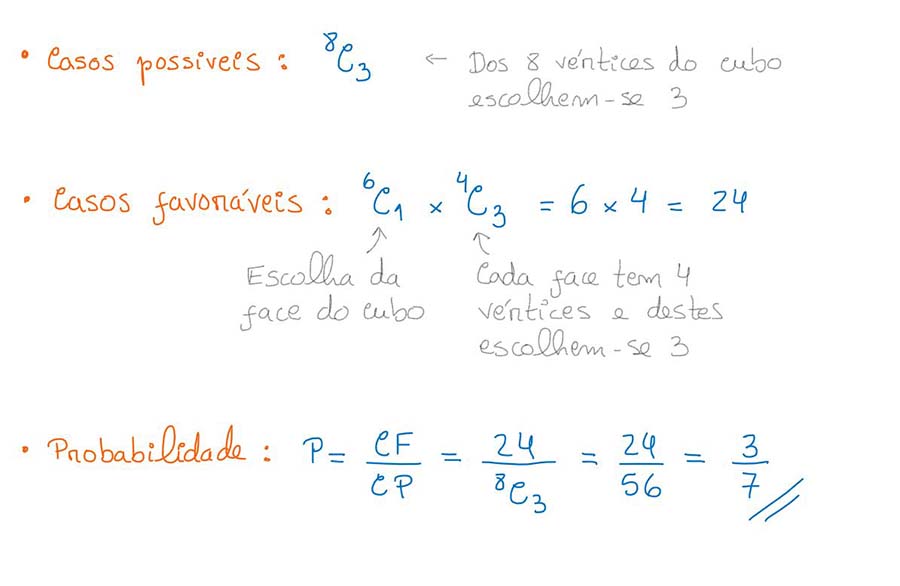 • Casos possíveis : ⁸C₃ ← Dos 8 vértices do cubo
escolhem-se 3
• Casos favoráveis : ⁶C₁ × ⁴C₃ = 6 × 4 = 24
Escolha da
face do cubo
Cada face tem 4
vértices e destes
escolhem-se 3
• Probabilidade : P = CF/CP = 24/⁸C₃ = 24/56 = 3/7 //